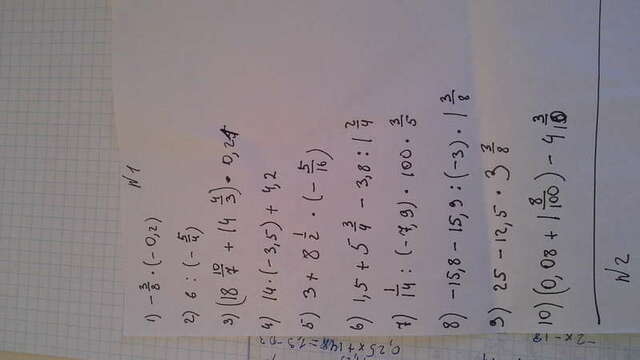 N1
1) -3/8 · (-0,2)
2) 6 : (-5/4)
3) (18 10/7 + (4 4/3) · 0,24
4) 14 · (-3,5) + 4,2
5) 3 + 8 1/2 · (-5/16)
6) 1,5 + 5 3/4 - 3,8 : 1 2/4
7) 1/14 : (-7,9) · 100 · 3/5
8) -15,8 - 15,9 : (-3) · 1 3/8
9) 25 - 12,5 · 3 3/8
10) (0,08 + 1 8/100) - 4 3/10
N2